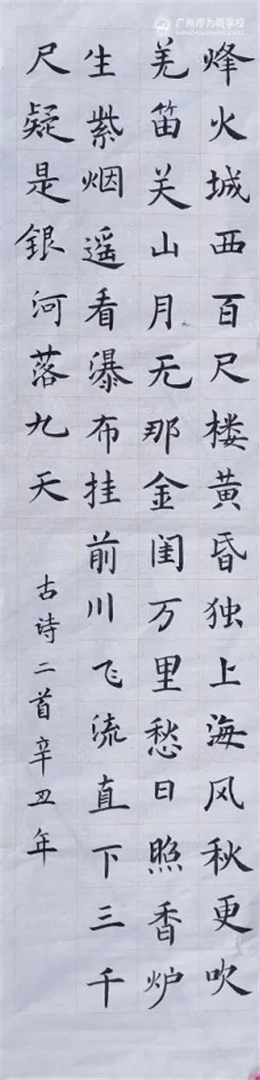 广州市为明学校
烽火城西百尺楼黄昏独上海风秋更吹
羌笛关山月无那金闺万里愁日照香炉
生紫烟遥看瀑布挂前川飞流直下三千
尺疑是銀河落九天
古诗二首辛丑年